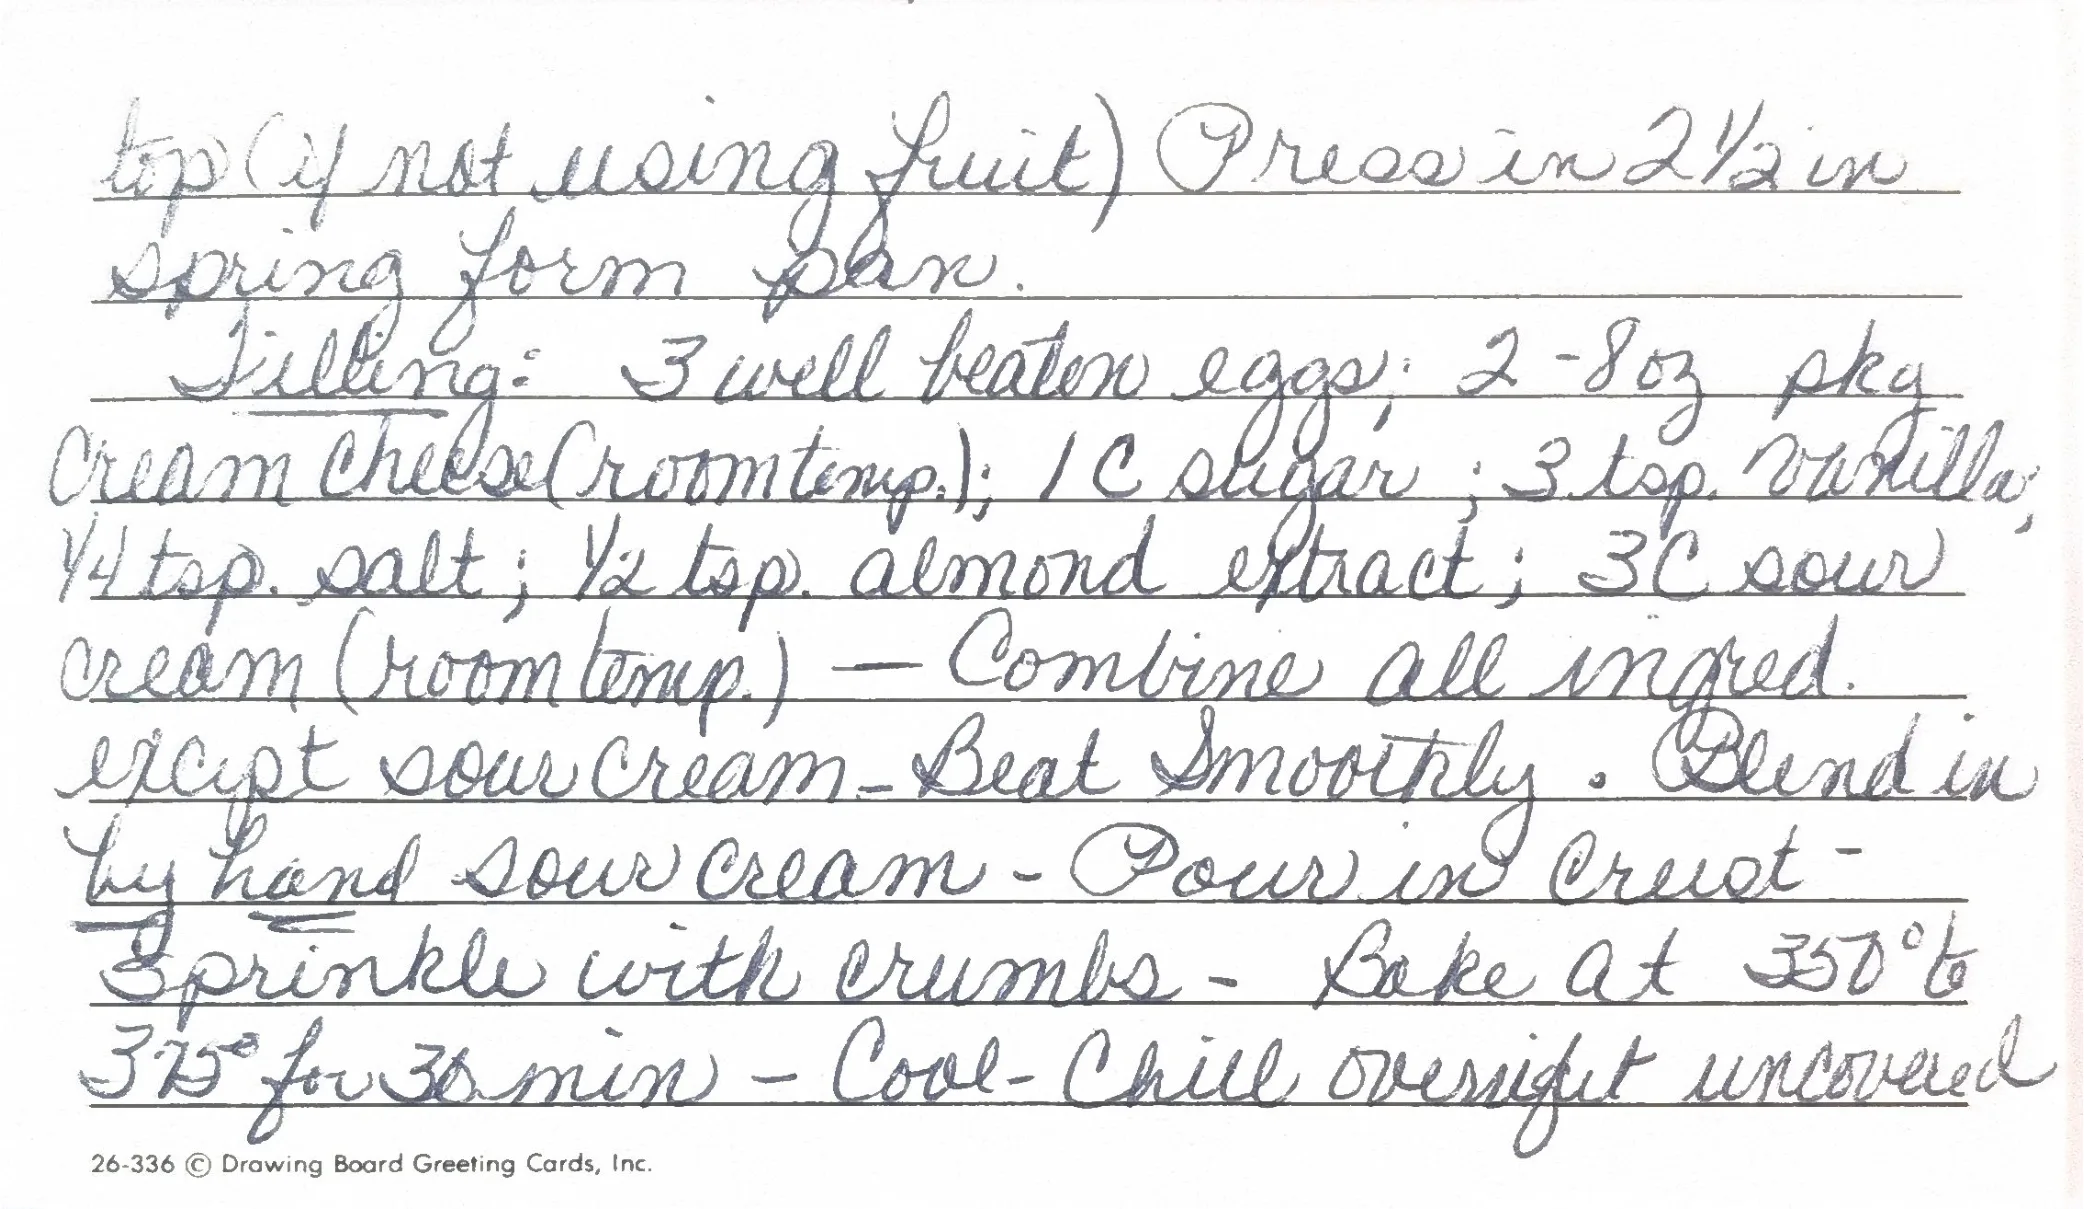 top (if not using fruit) Press in 2 1/2 in
spring form pan.
Filling: 3 well beaten eggs; 2 - 8 oz pkg
Cream Cheese (room temp.); 1 C sugar ; 3 tsp. vanilla;
1/4 tsp. salt ; 1/2 tsp. almond extract ; 3 C sour
cream (room temp.) — Combine all ingred.
except sour cream - Beat Smoothly . Blend in
by hand sour cream - Pour in Crust -
Sprinkle with crumbs - Bake at 350° to
375° for 30 min - Cool - Chill overnight uncovered
26-336 © Drawing Board Greeting Cards, Inc.